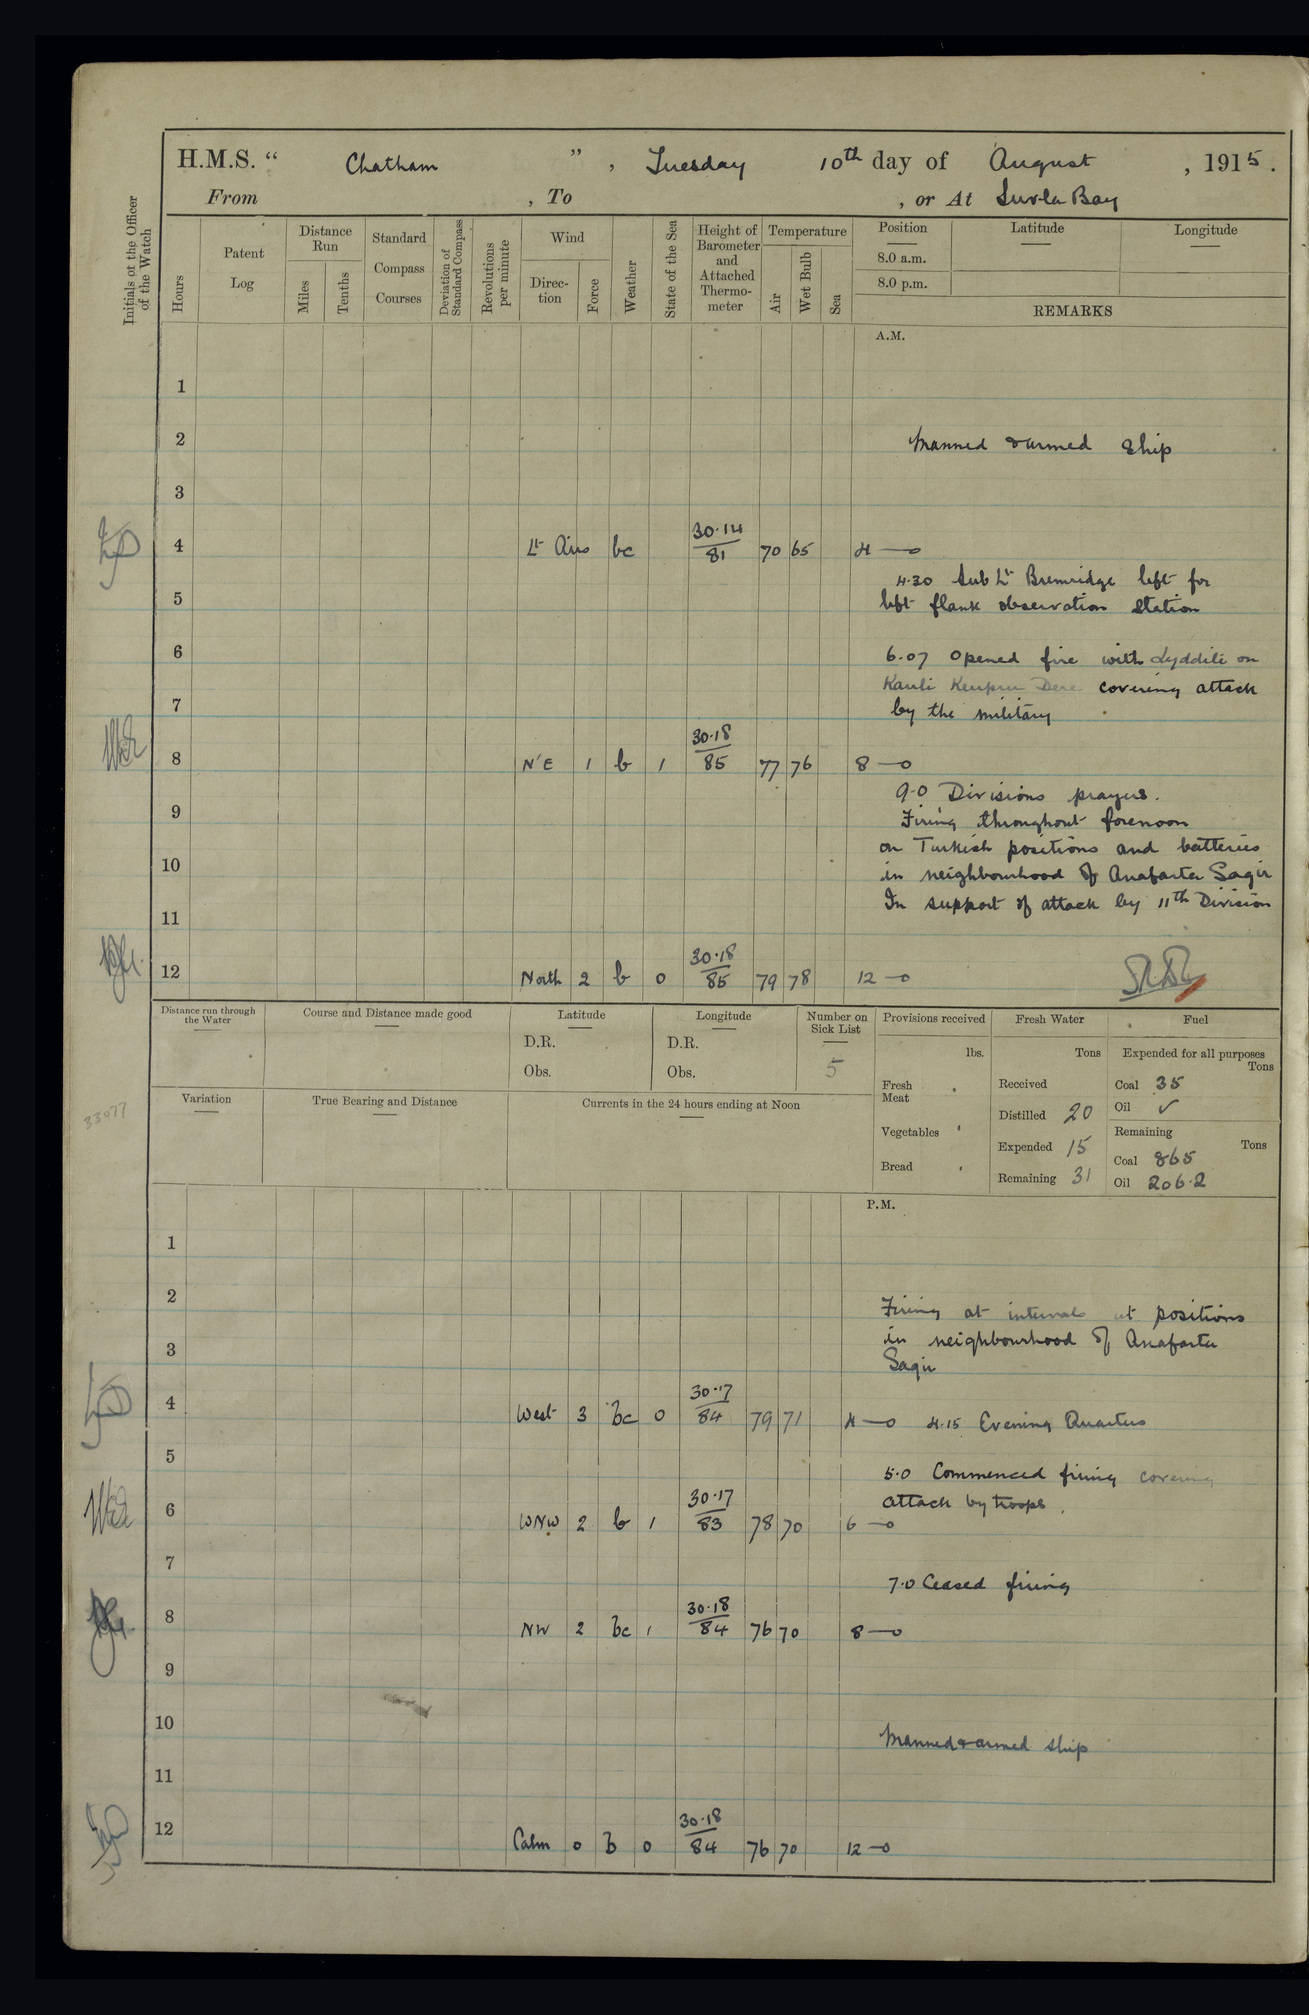 H.M.S. " Chatham ", Tuesday 10th day of August, 1915.
From , To , or At Suvla Bay
Initials of the Officer of the Watch
Hours
Patent Log
Distance Run
Miles
Tenths
Standard Compass Courses
Deviation of Standard Compass
Revolutions per minute
Wind
Direction
Force
Weather
State of the Sea
Height of Barometer and Attached Thermometer
Temperature
Air
Wet Bulb
Sea
Position
8.0 a.m.
8.0 p.m.
Latitude
Longitude
REMARKS
A.M.
1
2 Manned & armed Ship
3
4 Lt Airs bc 30.14 81 70 65 4 —o
4.30 Sub Lt Bremridge left for
5 left flank observation station
6 6.07 Opened fire with Lyddite on
Kauli Keupru Dere covering attack
7 by the military
8 N'E 1 b 1 30.18 85 77 76 8 —o
9.0 Divisions prayers.
9 Firing throughout forenoon
on Turkish positions and batteries
10 in neighbourhood of Anafarta Sagir
In support of attack by 11th Division
11
12 North 2 b 0 30.18 85 79 78 12 —o
Distance run through the Water
Course and Distance made good
Latitude
D.R.
Obs.
Longitude
D.R.
Obs.
Number on Sick List
5
Provisions received
lbs.
Fresh Meat
Vegetables
Bread
Fresh Water
Tons
Received
Distilled 20
Expended 15
Remaining 31
Fuel
Expended for all purposes
Tons
Coal 35
Oil ✓
Remaining
Tons
Coal 865
Oil 206.2
Variation
True Bearing and Distance
Currents in the 24 hours ending at Noon
33077
P.M.
1
2 Firing at intervals at positions
3 in neighbourhood of Anafarta
Sagir
4 West 3 bc 0 30.17 84 79 71 4 —o 4.15 Evening Quarters
5 5.0 Commenced firing covering
attack by troops.
6 WNW 2 b 1 30.17 83 78 70 6 —o
7 7.0 Ceased firing
8 NW 2 bc 1 30.18 84 76 70 8 —o
9
10 Manned & armed ship
11
12 Calm 0 b 0 30.18 84 76 70 12 —o